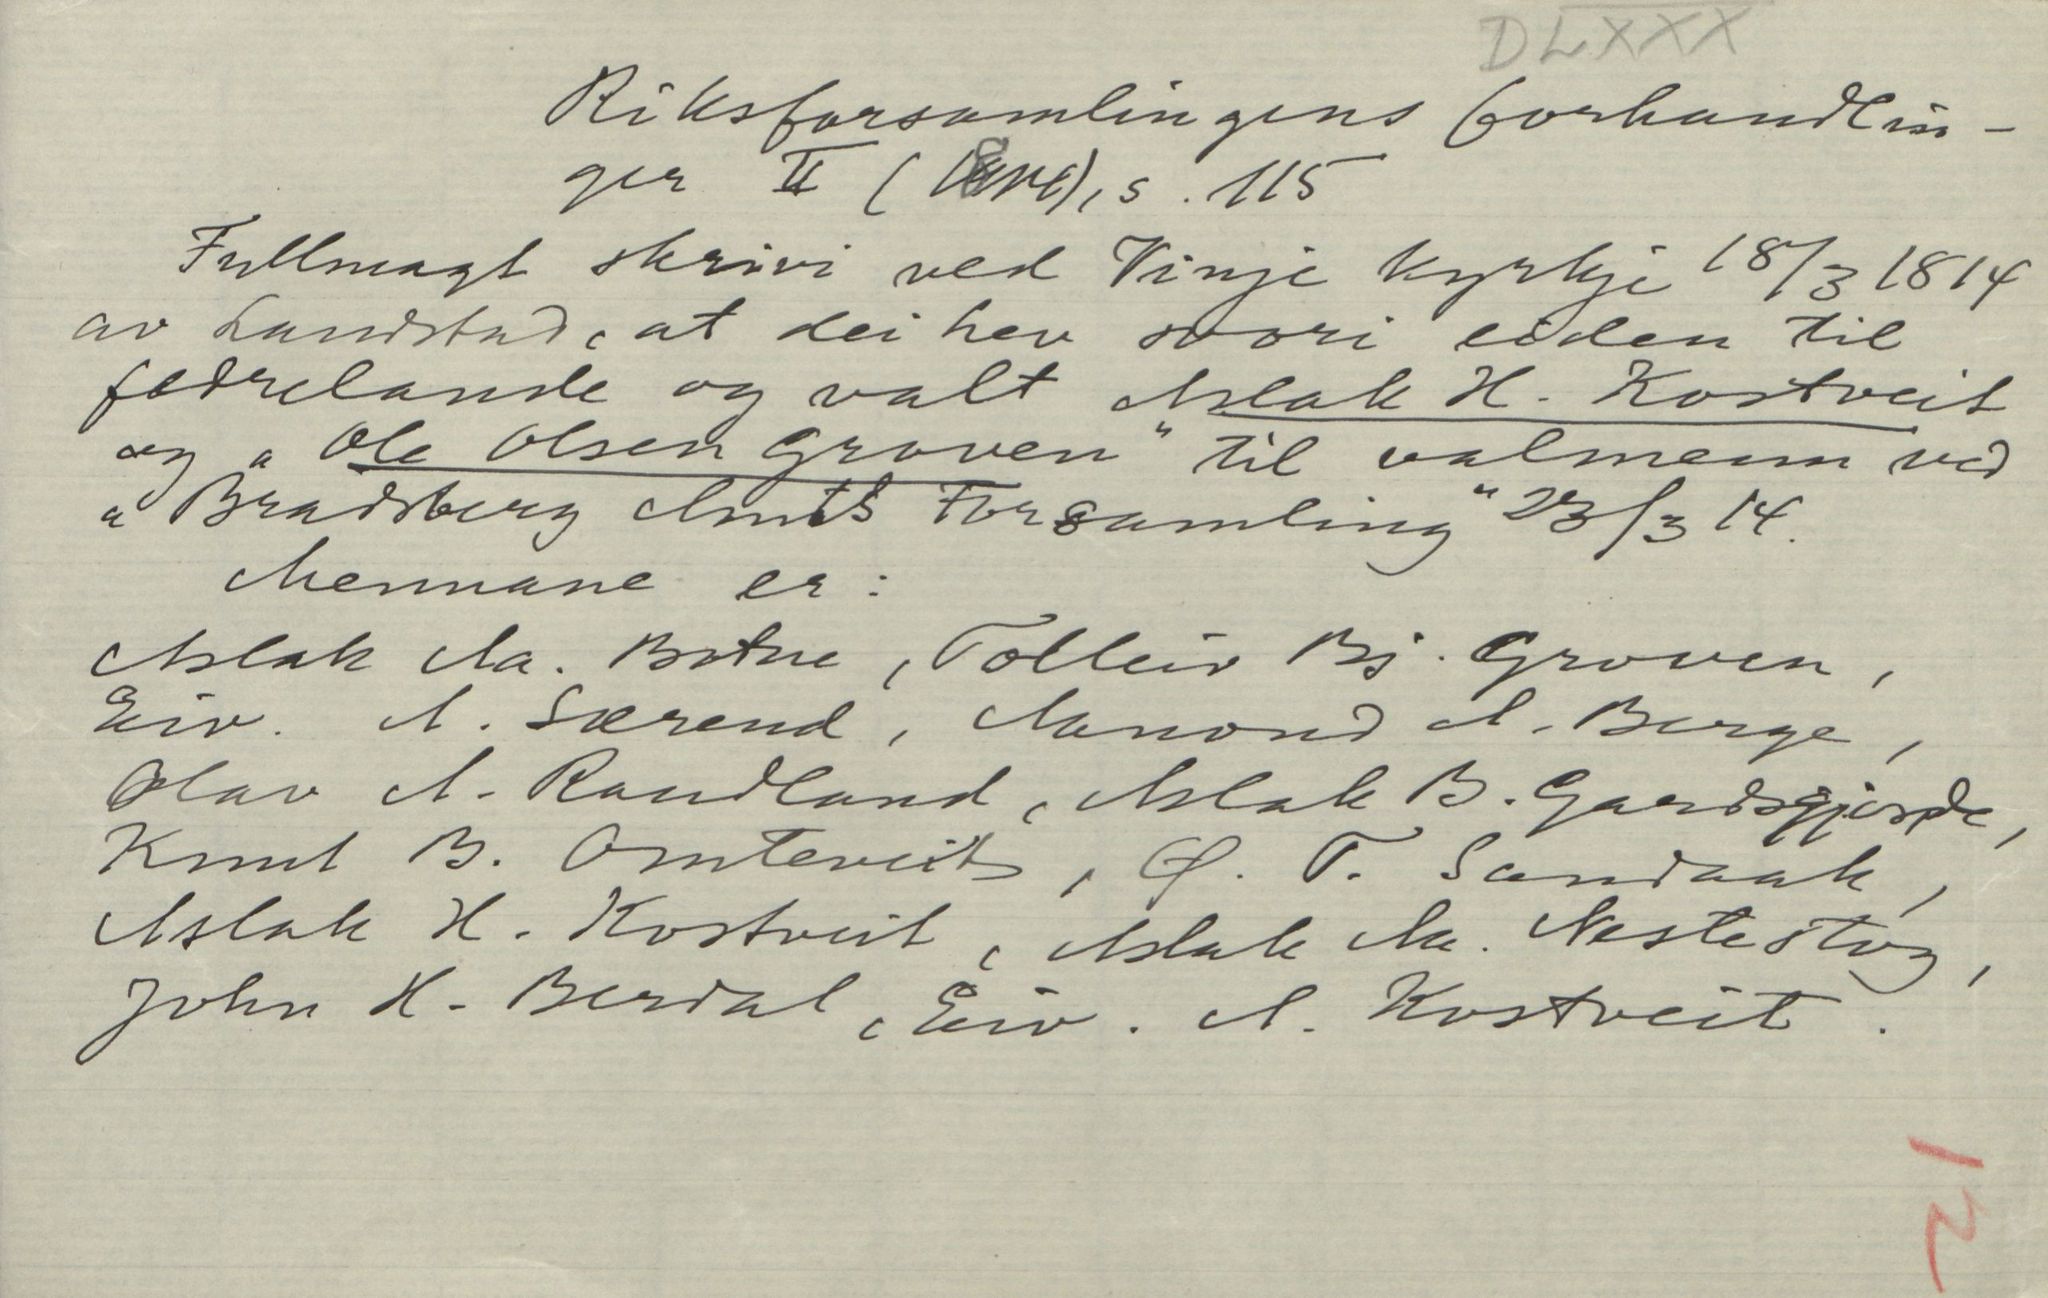 DLXXX
Riksforsamlingens forhandlin-
ger II ( ), s. 115
Fullmagt skrivi ved Vinje kyrkje 18/3 1814
av Landstad, at dei hev svori eiden til
fedrelande og valt Aslak H. Kostveit
og "Ole Olsen Groven" til valmenn ved
"Bradsberg Amts Forsamling" 23/3 14.
Mennane er:
Aslak Aa. Botne, Tolleiv Bj. Groven,
Eiv. A. Særend, Aamond A. Berge,
Olav A. Raudland, Aslak B. Gardsgjorde,
Knut B. Omtveit, O. T. Sandaak,
Aslak H. Kostveit, Aslak Aa. Nestestog,
John H. Berdal, Eiv. A. Kostveit.
12